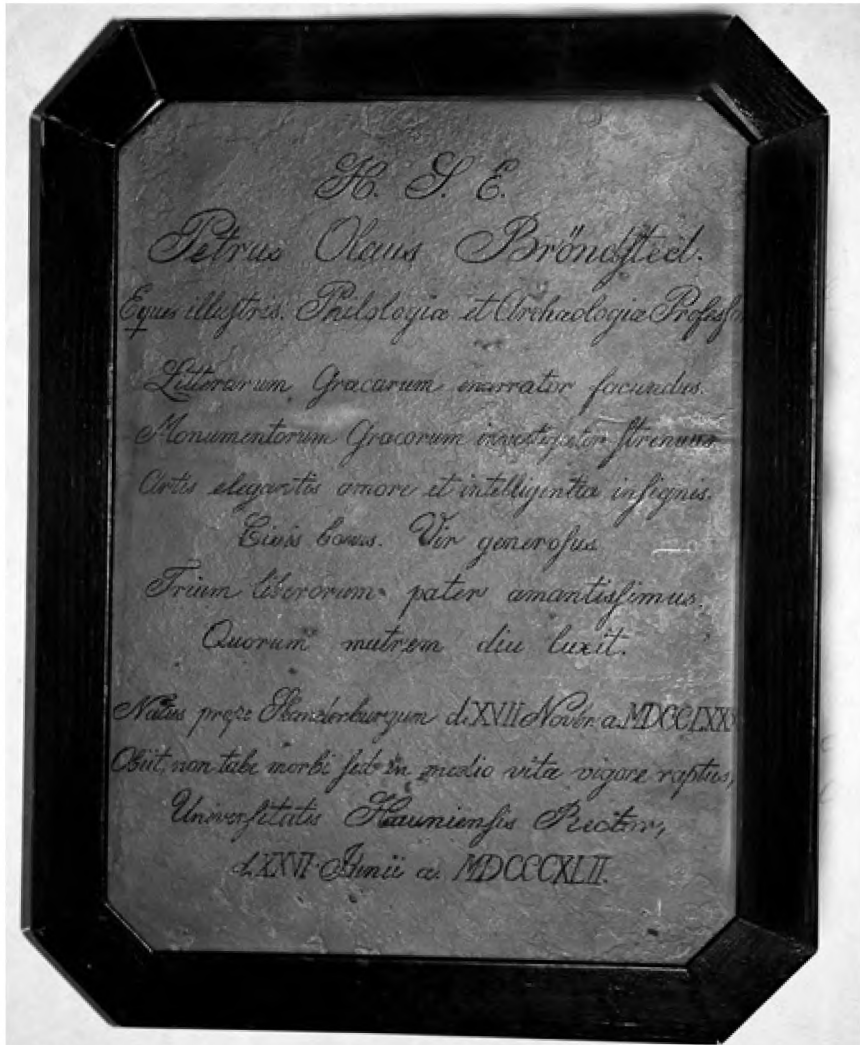 H. S. E.
Petrus Olaus Bröndsted.
Eques illustris. Philologiæ et Archæologiæ Professor
Litterarum Græcarum enarrator facundus.
Monumentorum Græcorum investigator strenuus
Artis elegantis amore et intelligentia insignis.
Civis bonus. Vir generosus
Trium liberorum pater amantissimus.
Quorum matrem diu luxit.
Natus prope Skanderburgum d. XVII Novbr. a. MDCCLXXX
Obiit, non tabe morbi sed in medio vitæ vigore raptus,
Universitatis Hauniensis Rector,
d. XXVI Junii a. MDCCCXLII.